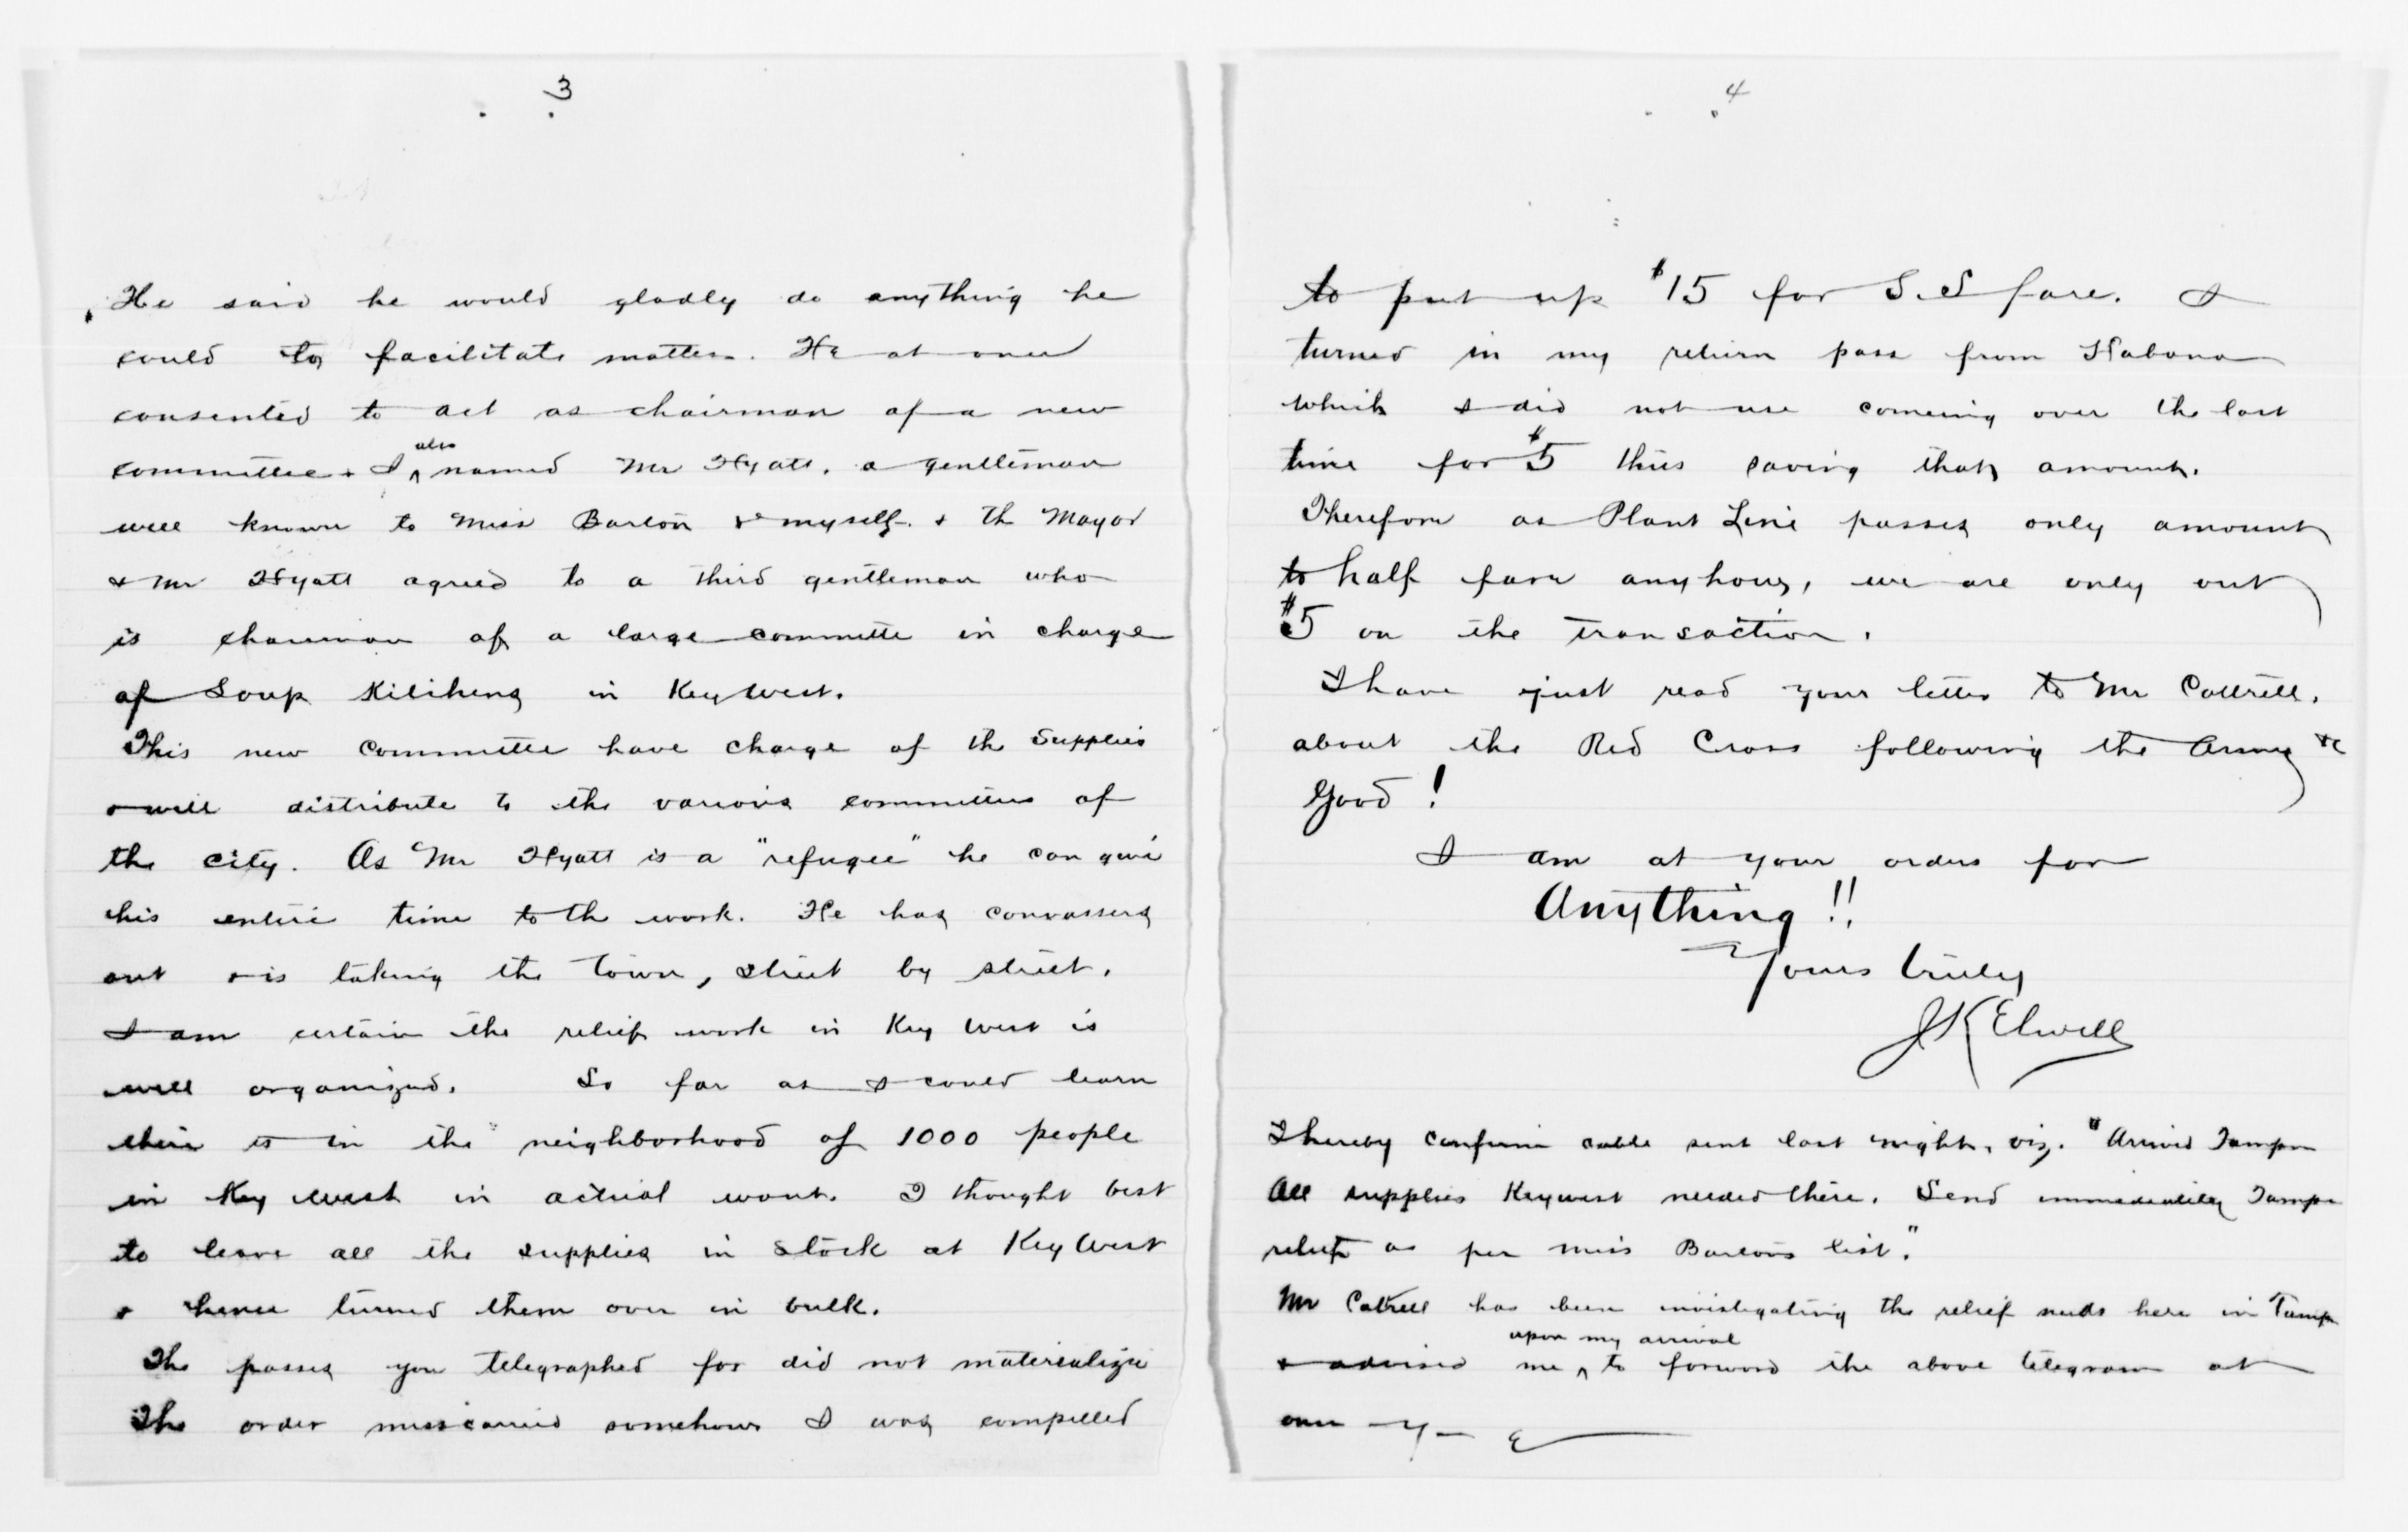 3
He said he would gladly do anything he
could to facilitate matters. He at once
consented to act as chairman of a new
committee + I also named Mr Hyatt, a gentleman
well known to Miss Barton & myself. + the Mayor
+ Mr Hyatt agreed to a third gentleman who
is chairman of a large committe in charge
of Soup Kitchens in Key West.
This new Committee have charge of the Supplies
+ will distribute to the various committees of
the city. As Mr Hyatt is a "refugee" he can give
his entire time to the work. He has canvassers
out + is taking the town, street by street.
I am certain the relief work in Key West is
well organized. So far as I could learn
there is in the neighborhood of 1000 people
in Key West in actual want. I thought best
to leave all the supplies in stock at Key West
+ hence turned them over in bulk.
The passes you telegraphed for did not materialize
The order misscarried somehow I was compelled
4
to put up $15 for S.S fare. I
turned in my return pass from Habana
which I did not use comeing over the last
time for $5 thus saving that amount.
Therefore as Plant Line passes only amount
to half fare anyhow, we are only out
$5 on the transaction.
I have just read your letter to Mr Cottrell.
about the Red Cross following the Army &c
Good!
I am at your orders for
Anything!!
Yours truly
J K Elwell
I hereby confirm cable sent last night, viz. "Arrived Tampa
All supplies Keywest needed there. Send immediately Tampa
relief as per Miss Bartons list."
Mr Cottrell has been investigating the relief needs here in Tampa
+ advised me upon my arrival to forward the above telegram at
once E